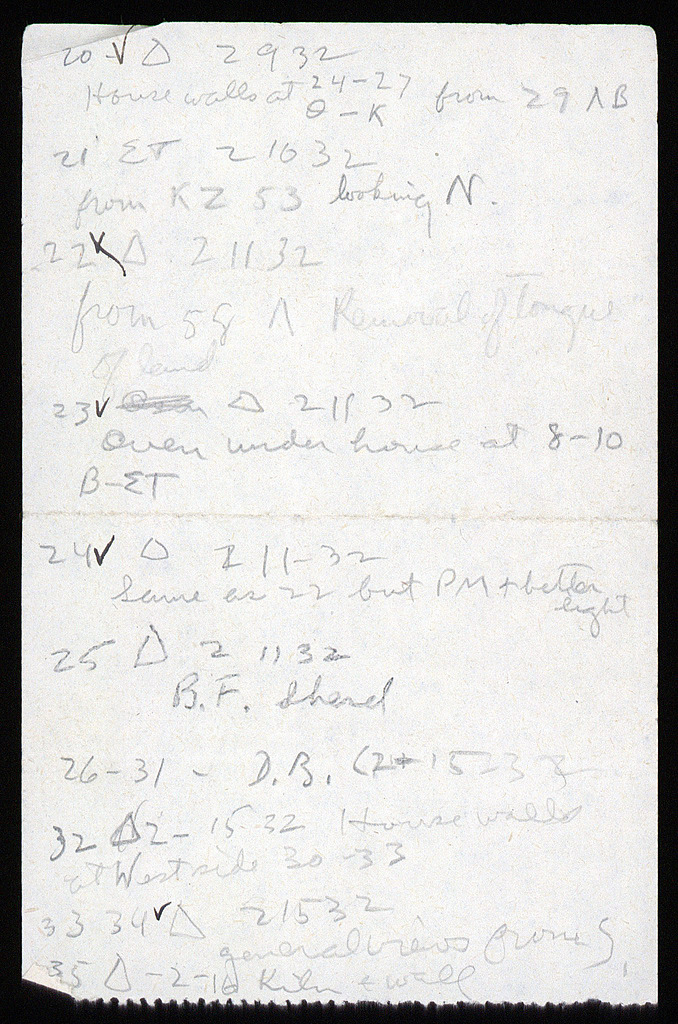 20 ✓ Δ 2 9 32
House walls at 24-27 Θ-K from 29 Λ B
21 ΣT 2 10 32
from K Z 53 looking N.
22 Δ 2 11 32
from 58 Λ Removal of "Tongue"
of land
23 ✓ Δ 2 11 32
Oven under house at 8-10
B-ΣT
24 ✓ Δ 2 11-32
Same as 22 but PM + better
light
25 Δ 2 11 32
B.F.
26-31 - D.B. (2-15 32
32 Δ 2-15-32 House walls
at West side 30-33
33 34 ✓ Δ 2 15 32
general views from S.
35 Δ-2-16 Kiln + wall